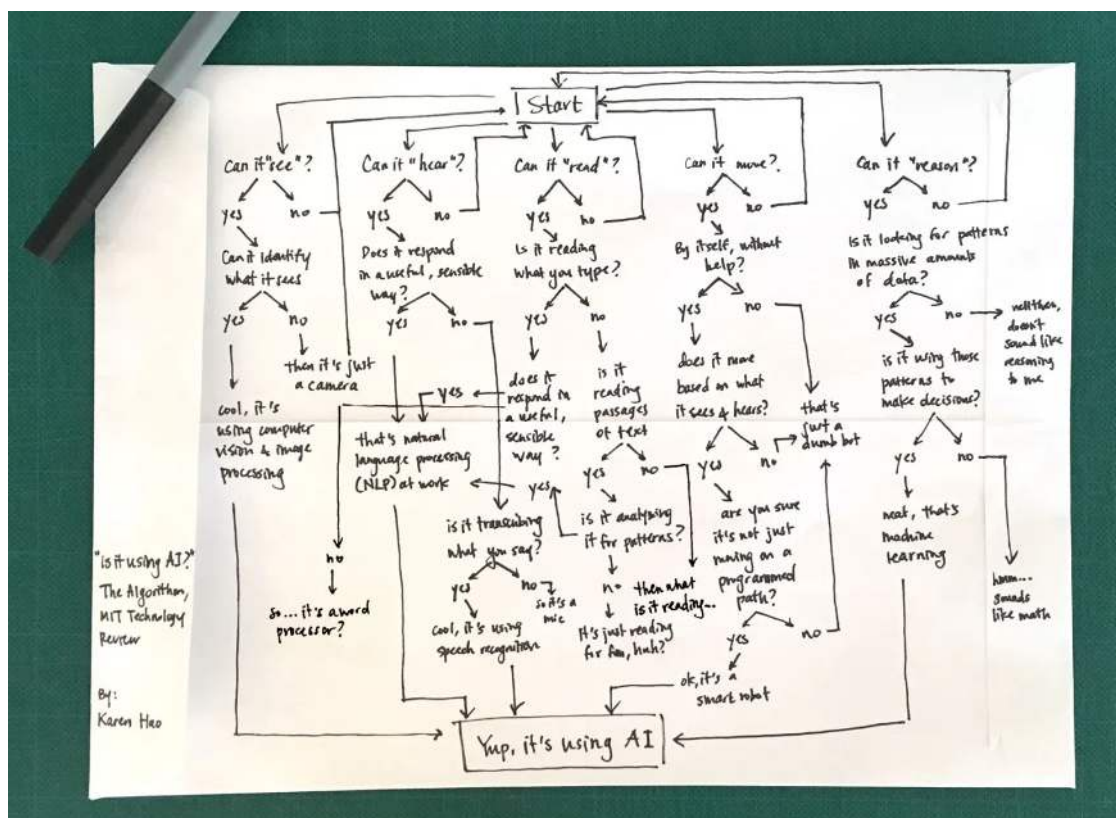 Start
Can it "see"?
yes
no
Can it identify
what it sees
yes
no
then it's just
a camera
cool, it's
using computer
vision & image
processing
Can it "hear"?
yes
no
Does it respond
in a useful, sensible
way?
yes
no
that's natural
language processing
(NLP) at work
is it transcribing
what you say?
yes
no
so it's a
mic
cool, it's using
speech recognition
Can it "read"?
yes
no
Is it reading
what you type?
yes
no
does it
respond in
a useful,
sensible
way?
yes
no
so... it's a word
processor?
is it
reading
passages
of text
yes
no
is it analyzing
it for patterns?
yes
no
It's just reading
for fun, huh?
then what
is it reading...
Can it move?
yes
no
By itself, without
help?
yes
no
does it move
based on what
it sees & hears?
yes
no
that's
just a
dumb bot
are you sure
it's not just
running on a
programmed
path?
yes
no
ok, it's a
smart robot
Can it "reason"?
yes
no
Is it looking for patterns
in massive amounts
of data?
yes
no
doesn't
sound like
reasoning
to me
is it using those
patterns to
make decisions?
yes
no
neat, that's
machine
learning
hmm...
sounds
like math
Yup, it's using AI
"is it using AI?"
The Algorithm,
MIT Technology
Review
By:
Karen Hao